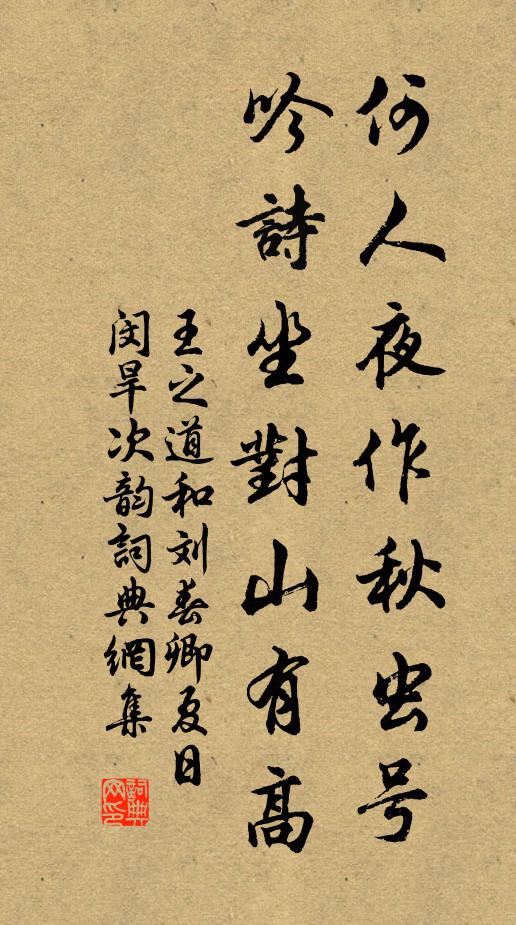 何人夜作秋虫号
吟詩坐對山有高
王之道和刘春卿夏日
闵旱次韵詞典網集
詞典网印